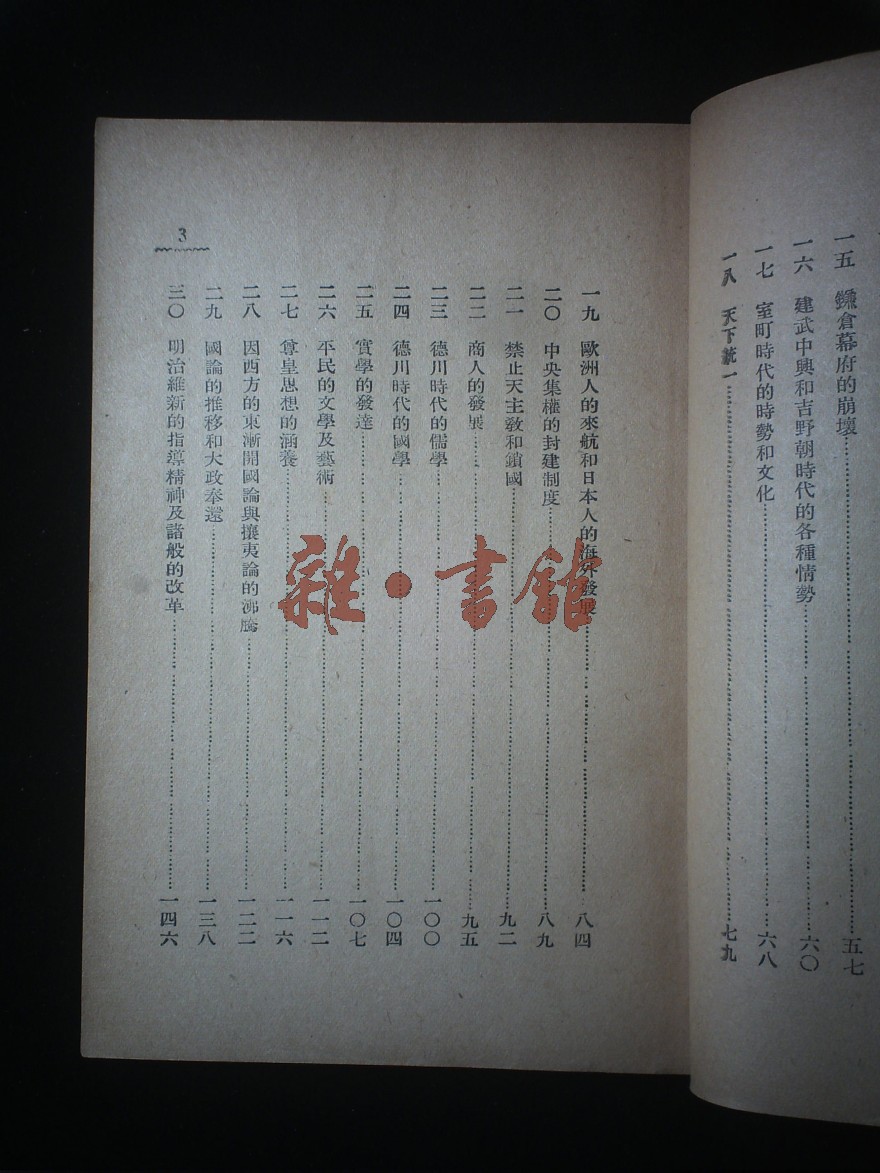 一五　鎌倉幕府的崩壞……五七
一六　建武中興和吉野朝時代的各種情勢……六〇
一七　室町時代的時勢和文化……六八
一八　天下統一……七九
3
一九　歐洲人的來航和日本人的海外發展……八四
二〇　中央集權的封建制度……八九
二一　禁止天主教和鎖國……九二
二二　商人的發展……九五
二三　德川時代的儒學……一〇〇
二四　德川時代的國學……一〇四
二五　實學的發達……一〇七
二六　平民的文學及藝術……一一二
二七　尊皇思想的涵養……一一六
二八　因西方的東漸開國論與攘夷論的沸騰……一二二
二九　國論的推移和大政奉還……一三八
三〇　明治維新的指導精神及諸般的改革……一四六
雜·書館